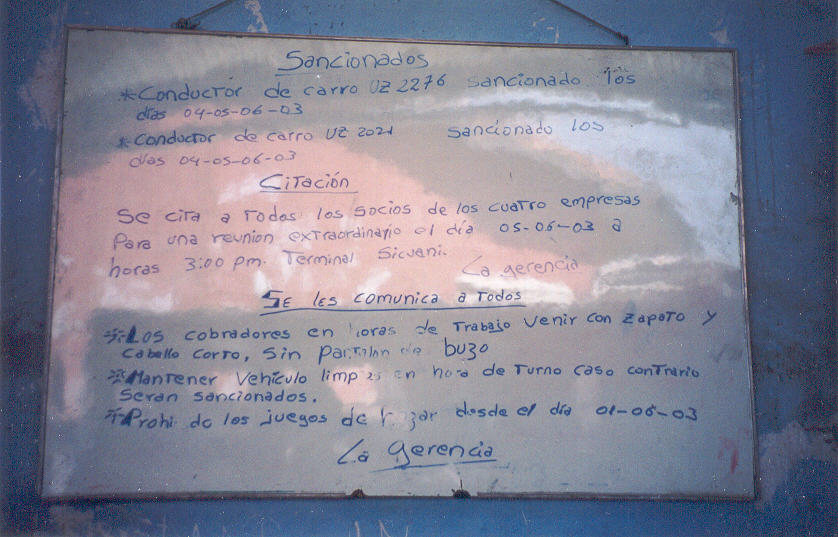 Sancionados
*Conductor de carro UZ 2276 sancionado los
días 04-05-06-03
*Conductor de carro UZ 2021 sancionado los
días 04-05-06-03
Citación
Se cita a Todos los socios de los cuatro empresas
Para una reunion extraordinario el día 05-06-03 a
horas 3:00 pm. Terminal Sicuani.
La gerencia
SE les comunica a Todos
*Los cobradores en horas de Trabajo venir con zapato y
Cabello corto, sin pantalon de buzo
*Mantener Vehículo en hora de Turno caso contrario
seran sancionados.
* los juegos de desde el día 01-06-03
La gerencia